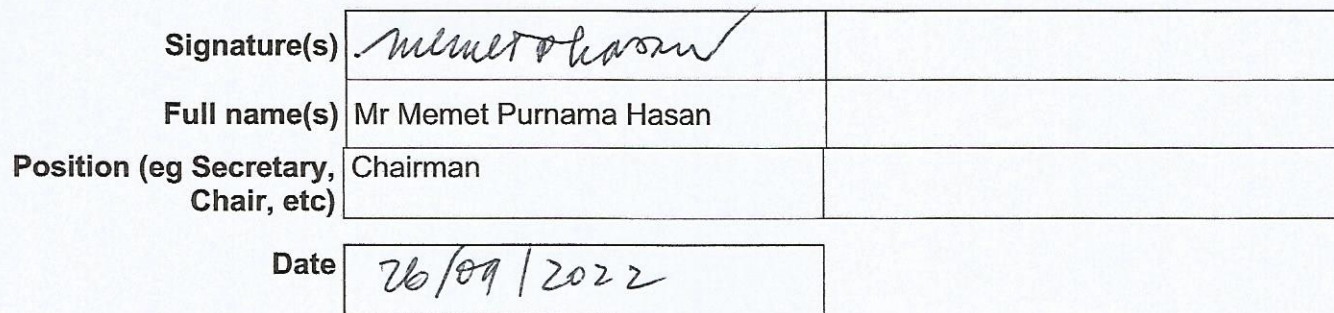 Signature(s)
Full name(s) Mr Memet Purnama Hasan
Position (eg Secretary, Chairman
Chair, etc)
Date 26/09/2022